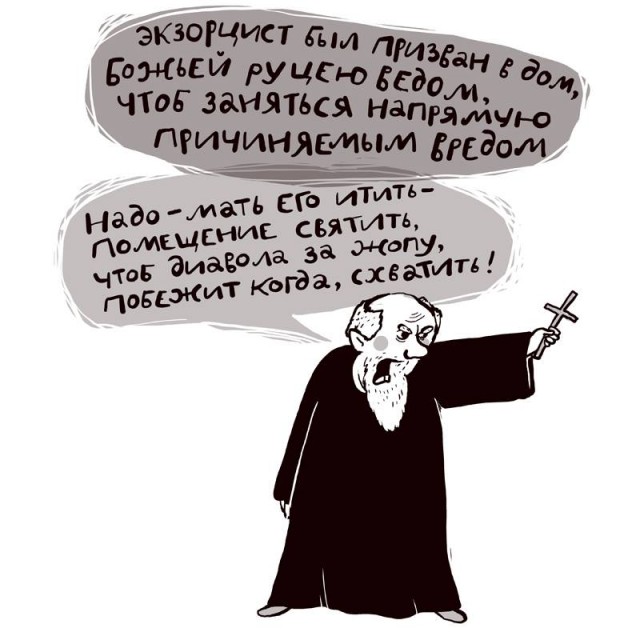 Экзорцист был призван в дом,
Божьей руцею ведом,
чтоб заняться напрямую
причиняемым вредом
Надо - мать его итить -
помещение святить,
чтоб диавола за жопу,
побежит когда, схватить!